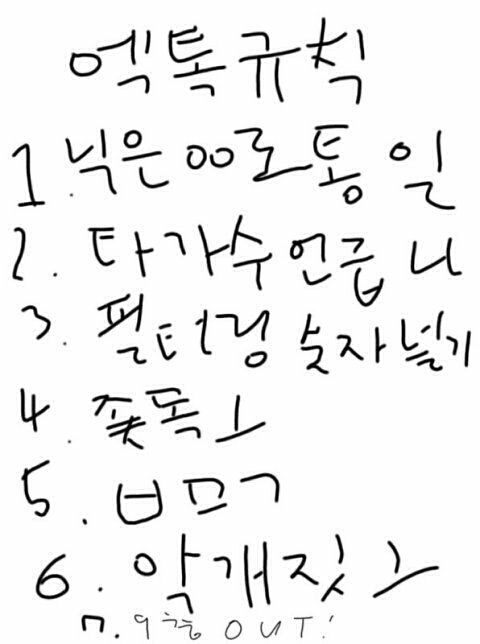 엑톡규칙
1. 닉은 00로 통일
2. 타가수 언급 ㄴ
3. 필터링 숫자 넣기
4. 좆목ㅗ
5. ㅂㅁㄱ
6. 악개짓ㅗ
7. 9층 OUT!